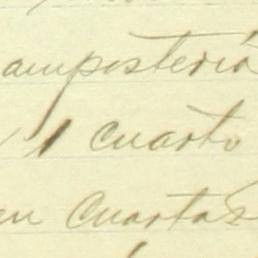 ampostería
1 Cuarto
en Cuartas